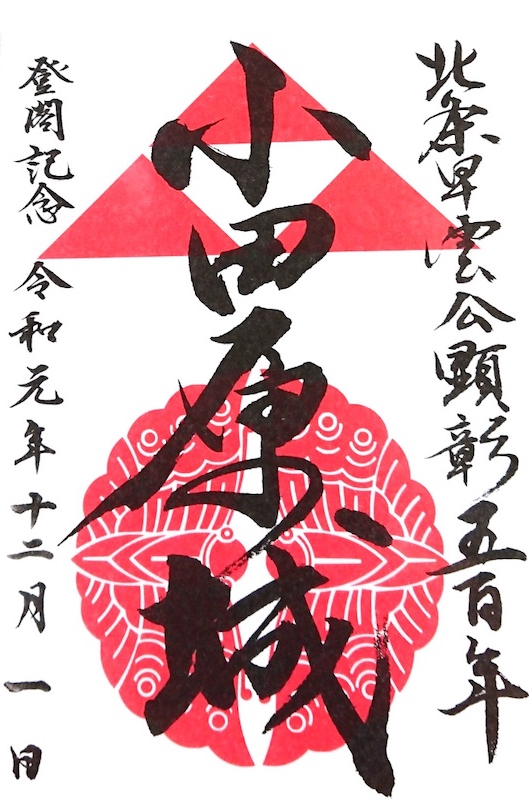 北条早雲公顕彰五百年
小田原城
登閣記念 令和元年十二月一日